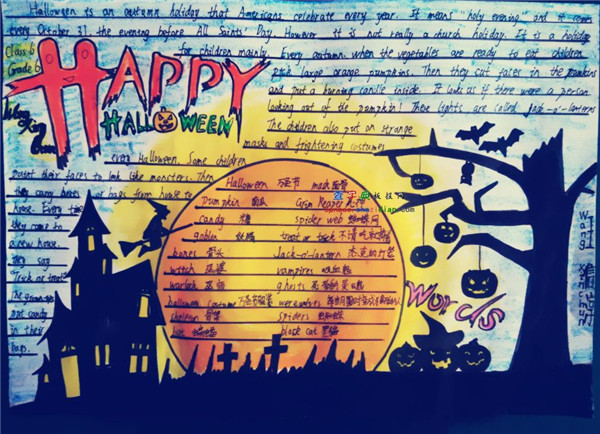 Halloween is an autumn holiday that Americans celebrate every year. It means "holy evening" and it comes
every October 31, the evening before All Saints' Day. However it is not really a church holiday. It is a holiday
for children mainly. Every autumn, when the vegetables are ready to eat children
pick large orange pumpkins. Then they cut faces in the pumpkins
and put a burning candle inside. It looks as if there were a person
looking out of the pumpkin! These lights are called jack-o'-lanterns
The children also put on strange
masks and frightening costumes
every Halloween. Some children
paint their faces to look like monsters. Then
they carry bags from house to
house. Every time
they come to
a new house
they say
Trick or treat
The grown-ups
put candy
in their
bags.
Class 6
Grade 6
HAPPY
HALLOWEEN
Halloween 万圣节 mask 面具
Pumpkin 南瓜 Grim Reaper 死神
candy 糖 spider web 蜘蛛网
goblin 妖精 treat or trick 不请吃就捣蛋
bones 骨头 Jack-o'-lantern 杰克的灯笼
witch 巫婆 vampires 吸血鬼
warlock 巫师 ghosts
halloween costume 万圣节服装 werewolves
skeleton 骨架 spiders 蜘蛛
bat 蝙蝠 black cat 黑猫
Words
Wang